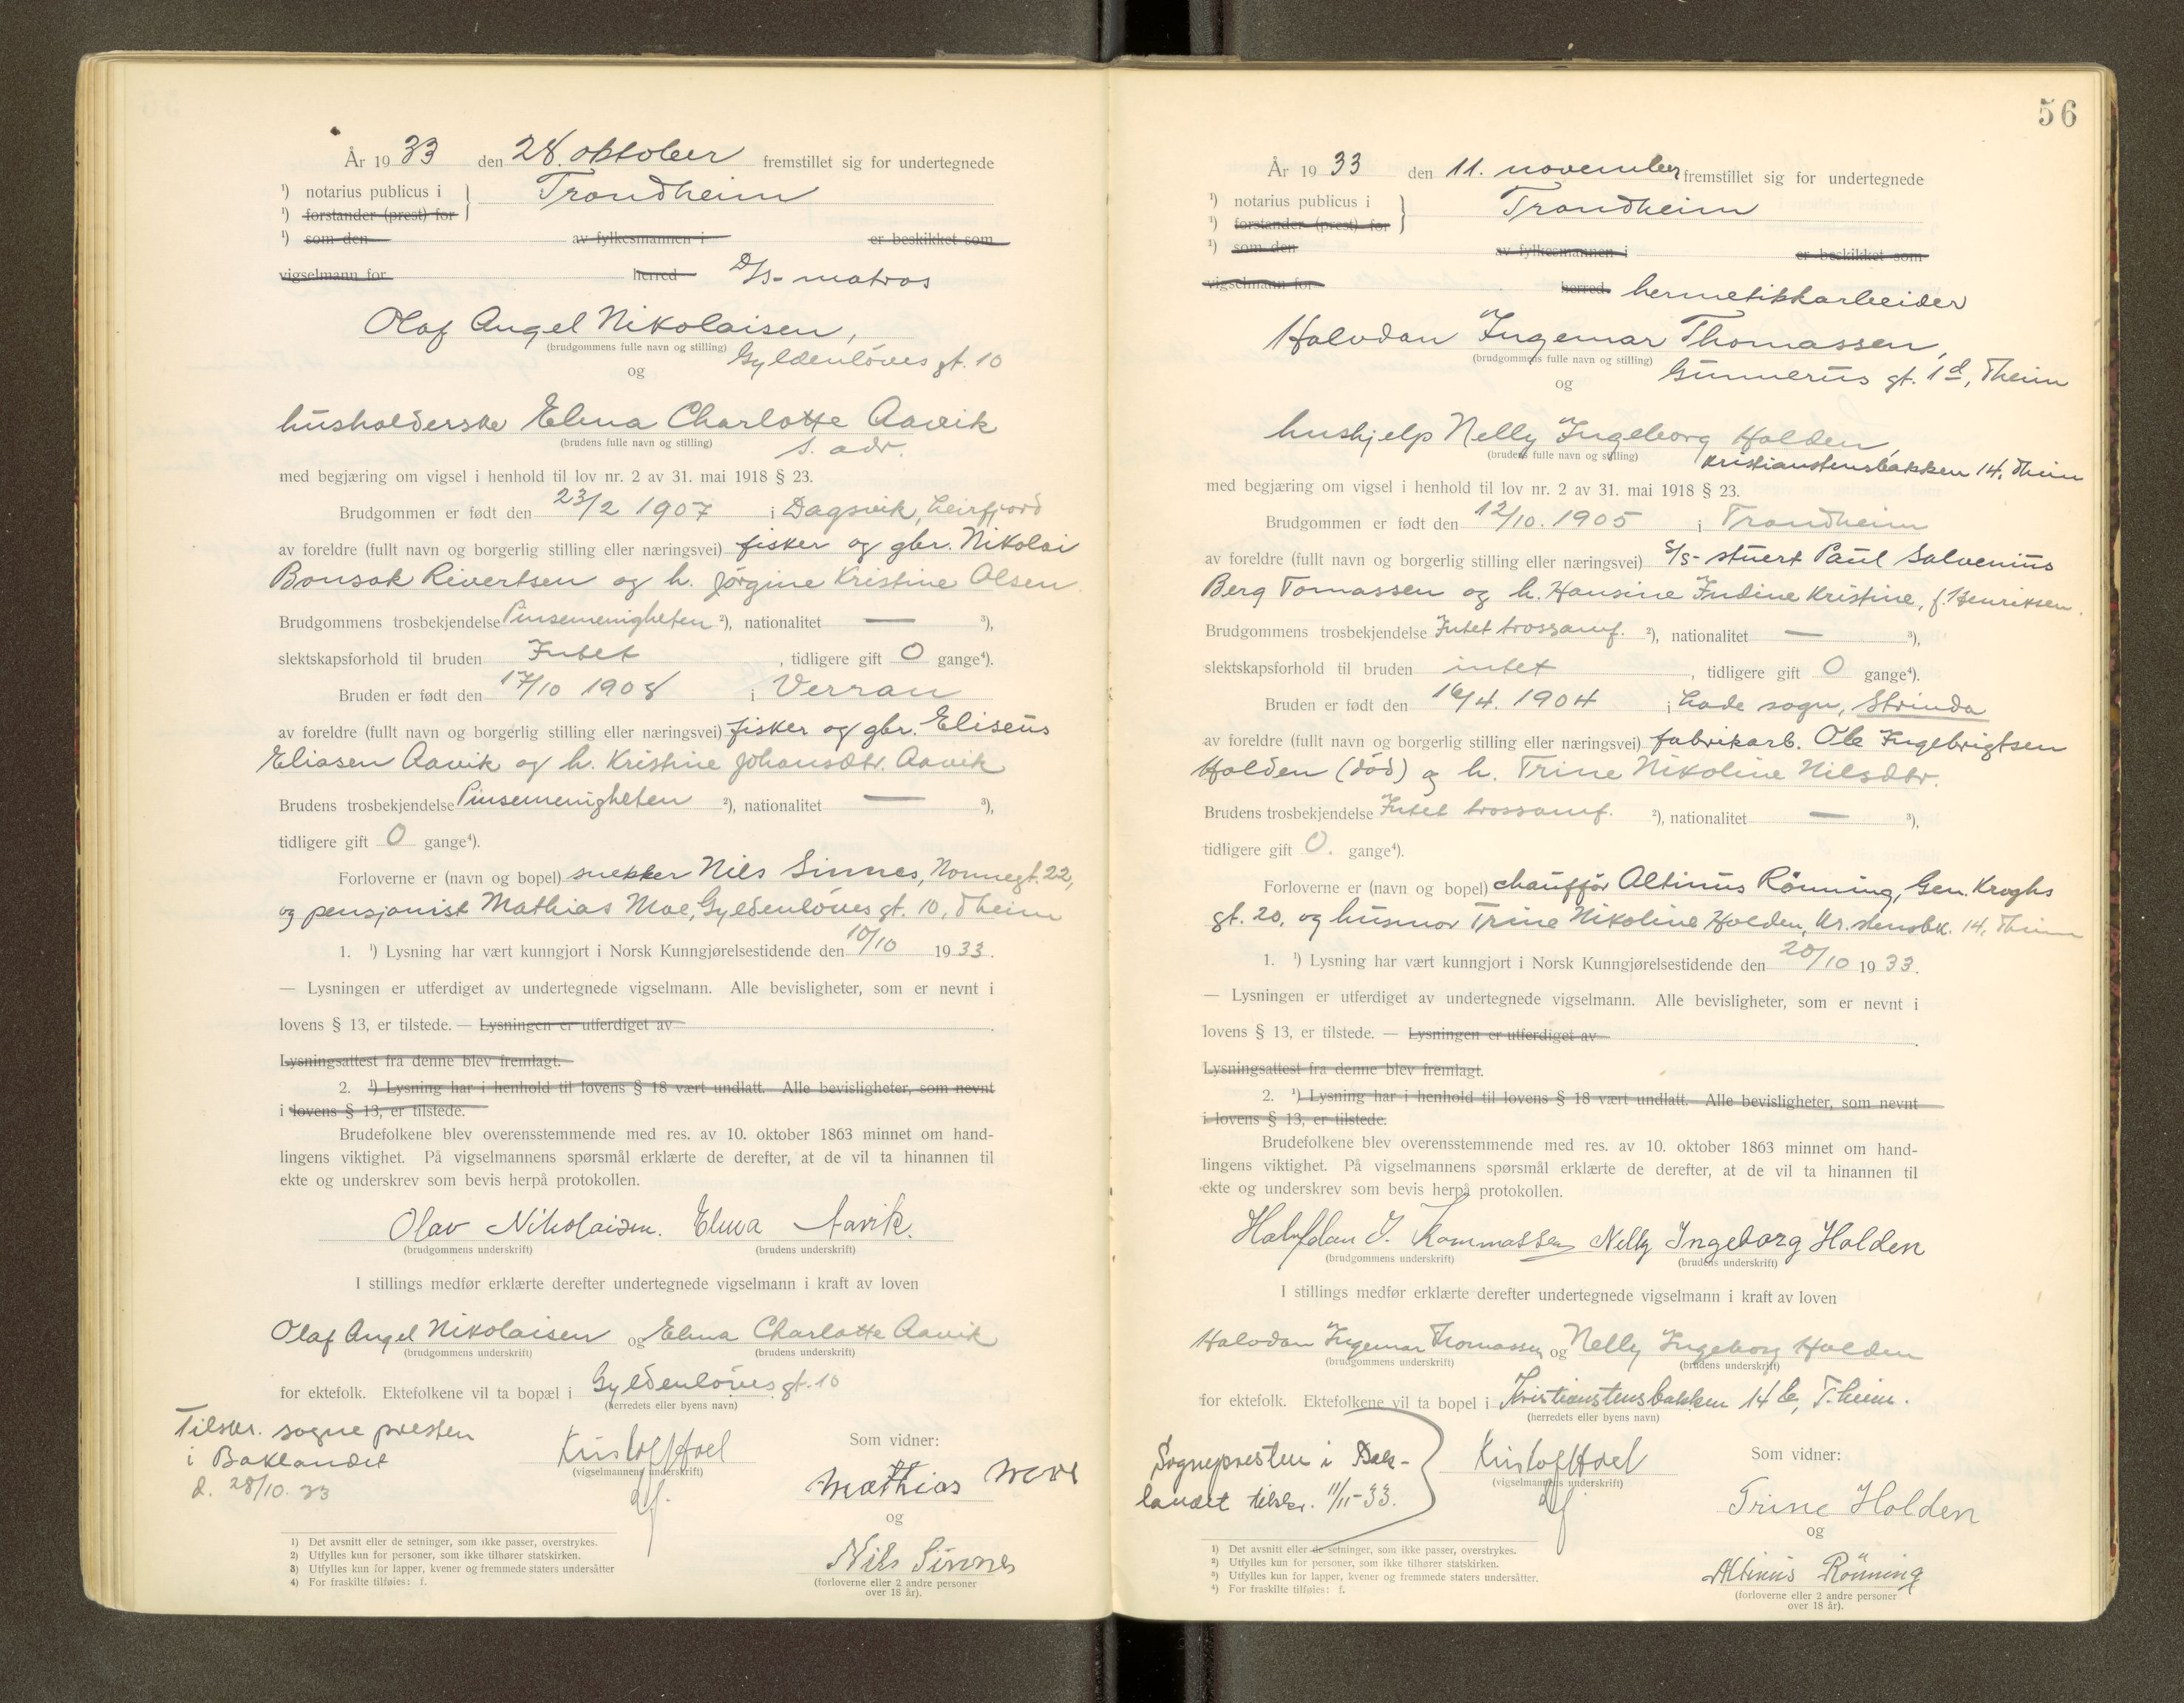 År 1933 den 28. oktober fremstillet sig for undertegnede
¹) notarius publicus i } Trondheim
¹) forstander (prest) for
¹) som den av fylkesmannen i er beskikket som
vigselmann for herred D/S- matros
Olaf Angel Nikolaisen,
(brudgommens fulle navn og stilling) Gyldenløves gt. 10
og
husholderske Elma Charlotte Aavik
(brudens fulle navn og stilling) s. adr.
med begjæring om vigsel i henhold til lov nr. 2 av 31. mai 1918 § 23.
Brudgommen er født den 23/2 1907 i Dagsvik, Leirfjord
av foreldre (fullt navn og borgerlig stilling eller næringsvei) fisker og gbr. Nikolai
Bonsak Rivertsen og h. Jörgine Kristine Olsen.
Brudgommens trosbekjendelse Pinsemenigheten ²), nationalitet — ³),
slektskapsforhold til bruden Intet , tidligere gift 0 gange⁴).
Bruden er født den 17/10 1908 i Verran
av foreldre (fullt navn og borgerlig stilling eller næringsvei) fisker og gbr. Eliseus
Eliasen Aavik og h. Kristine Johansdtr. Aavik
Brudens trosbekjendelse Pinsemenigheten ²), nationalitet — ³),
tidligere gift 0 gange⁴).
Forloverne er (navn og bopel) snekker Nils Sinnes, Nonnegt. 22,
og pensjonist Mathias Moe, Gyldenløves gt. 10, Theim
1. ¹) Lysning har vært kunngjort i Norsk Kunngjørelsestidende den 10/10 1933.
— Lysningen er utferdiget av undertegnede vigselmann. Alle bevisligheter, som er nevnt i
lovens § 13, er tilstede. — Lysningen er utferdiget av .
Lysningsattest fra denne blev fremlagt.
2. ¹) Lysning har i henhold til lovens § 18 vært undlatt. Alle bevisligheter, som nevnt
i lovens § 13, er tilstede.
Brudefolkene blev overensstemmende med res. av 10. oktober 1863 minnet om hand-
lingens viktighet. På vigselmannens spørsmål erklærte de derefter, at de vil ta hinannen til
ekte og underskrev som bevis herpå protokollen.
Olav Nikolaisen. Elma Aavik.
(brudgommens underskrift) (brudens underskrift)
I stillings medfør erklærte derefter undertegnede vigselmann i kraft av loven
Olaf Angel Nikolaisen og Elma Charlotte Aavik
(brudgommens underskrift) (brudens underskrift)
for ektefolk. Ektefolkene vil ta bopæl i Gyldenløves gt. 10
(herredets eller byens navn)
Tilskr. sogne presten
i Baklandet
d. 28/10. 33
Kristof Hoel
(vigselmannens underskrift)
Som vidner:
Mathias Moe
og
Nils Sinnes
(forloverne eller 2 andre personer
over 18 år).
1) Det avsnitt eller de setninger, som ikke passer, overstrykes.
2) Utfylles kun for personer, som ikke tilhører statskirken.
3) Utfylles kun for lapper, kvener og fremmede staters undersåtter
4) For fraskilte tilføies: f.
56
År 1933 den 11. november fremstillet sig for undertegnede
¹) notarius publicus i } Trondheim
¹) forstander (prest) for
¹) som den av fylkesmannen i er beskikket som
vigselmann for herred hermetikkarbeider
Halvdan Ingemar Thomassen,
(brudgommens fulle navn og stilling) Gunnerus gt. 1d, Theim
og
hushjelp Nelly Ingeborg Holden,
(brudens fulle navn og stilling) Kristianstensbakken 14, Theim
med begjæring om vigsel i henhold til lov nr. 2 av 31. mai 1918 § 23.
Brudgommen er født den 12/10. 1905 i Trondheim
av foreldre (fullt navn og borgerlig stilling eller næringsvei) S/S- stuert Paul Salvenius
Berg Tomassen og h. Hansine Indine Kristine, f. Henriksen.
Brudgommens trosbekjendelse Intet trossamf. ²), nationalitet — ³),
slektskapsforhold til bruden intet , tidligere gift 0 gange⁴).
Bruden er født den 16/4. 1904 i Lade sogn, Strinda
av foreldre (fullt navn og borgerlig stilling eller næringsvei) fabrikarb. Ole Ingebrigtsen
Holden (død) og h. Trine Nikoline Nilsdtr.
Brudens trosbekjendelse Intet trossamf. ²), nationalitet — ³),
tidligere gift 0. gange⁴).
Forloverne er (navn og bopel) chauffør Altinus Rönning, Gen. Kroghs
gt. 20, og husmor Trine Nikoline Holden, Kr. stensbk. 14, Theim
1. ¹) Lysning har vært kunngjort i Norsk Kunngjørelsestidende den 20/10 1933.
— Lysningen er utferdiget av undertegnede vigselmann. Alle bevisligheter, som er nevnt i
lovens § 13, er tilstede. — Lysningen er utferdiget av .
Lysningsattest fra denne blev fremlagt.
2. ¹) Lysning har i henhold til lovens § 18 vært undlatt. Alle bevisligheter, som nevnt
i lovens § 13, er tilstede.
Brudefolkene blev overensstemmende med res. av 10. oktober 1863 minnet om hand-
lingens viktighet. På vigselmannens spørsmål erklærte de derefter, at de vil ta hinannen til
ekte og underskrev som bevis herpå protokollen.
Halfdan I. Tommassen Nelly Ingeborg Holden
(brudgommens underskrift) (brudens underskrift)
I stillings medfør erklærte derefter undertegnede vigselmann i kraft av loven
Halvdan Ingemar Thomassen og Nelly Ingeborg Holden
(brudgommens underskrift) (brudens underskrift)
for ektefolk. Ektefolkene vil ta bopel i Kristianstensbakken 14 b, T.heim.
(herredets eller byens navn)
Sognepresten i Bak-
landet tilskr. 11/11-33.
Kristof Hoel
(vigselmannens underskrift)
Som vidner:
Trine Holden
og
Altinus Rönning
(forloverne eller 2 andre personer
over 18 år).
1) Det avsnitt eller de setninger, som ikke passer, overstrykes.
2) Utfylles kun for personer, som ikke tilhører statskirken.
3) Utfylles kun for lapper, kvener og fremmede staters undersåtter.
4) For fraskilte tilføies: f.